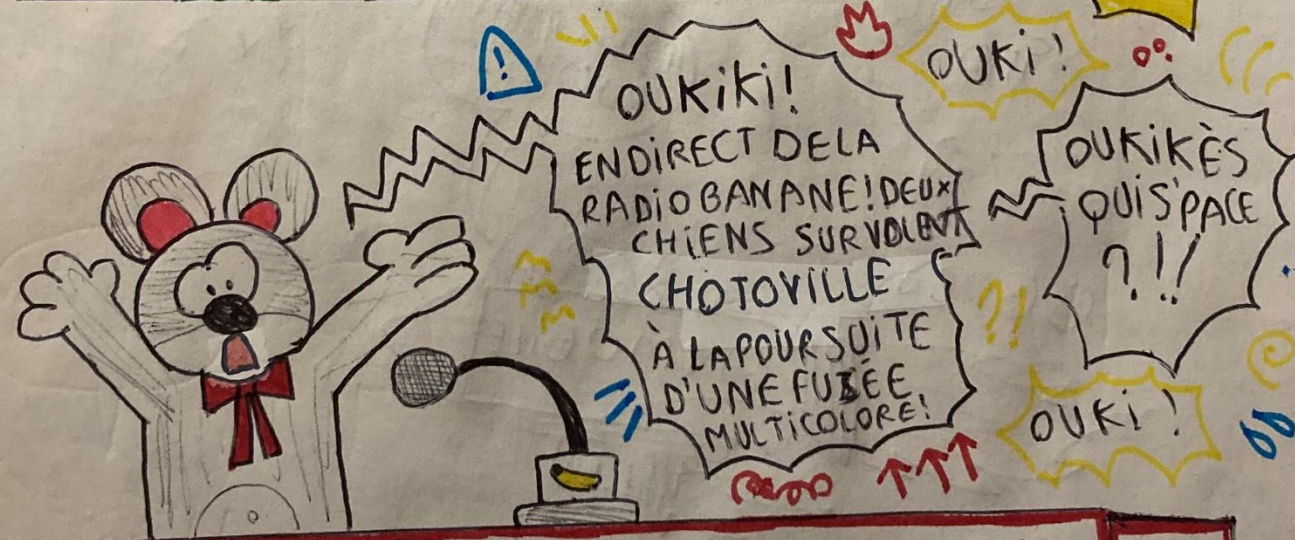 OUKiKi!
EN DiRECT DE LA
RADiO BANANE! DEUX
CHiENS SURVOLENT
CHOTOViLLE
À LA POURSUiTE
D'UNE FUSÉE
MULTiCOLORE!
OUKi!
OUKiKÈS
QUi S'PACE
?!!
?!
OUKi!
!